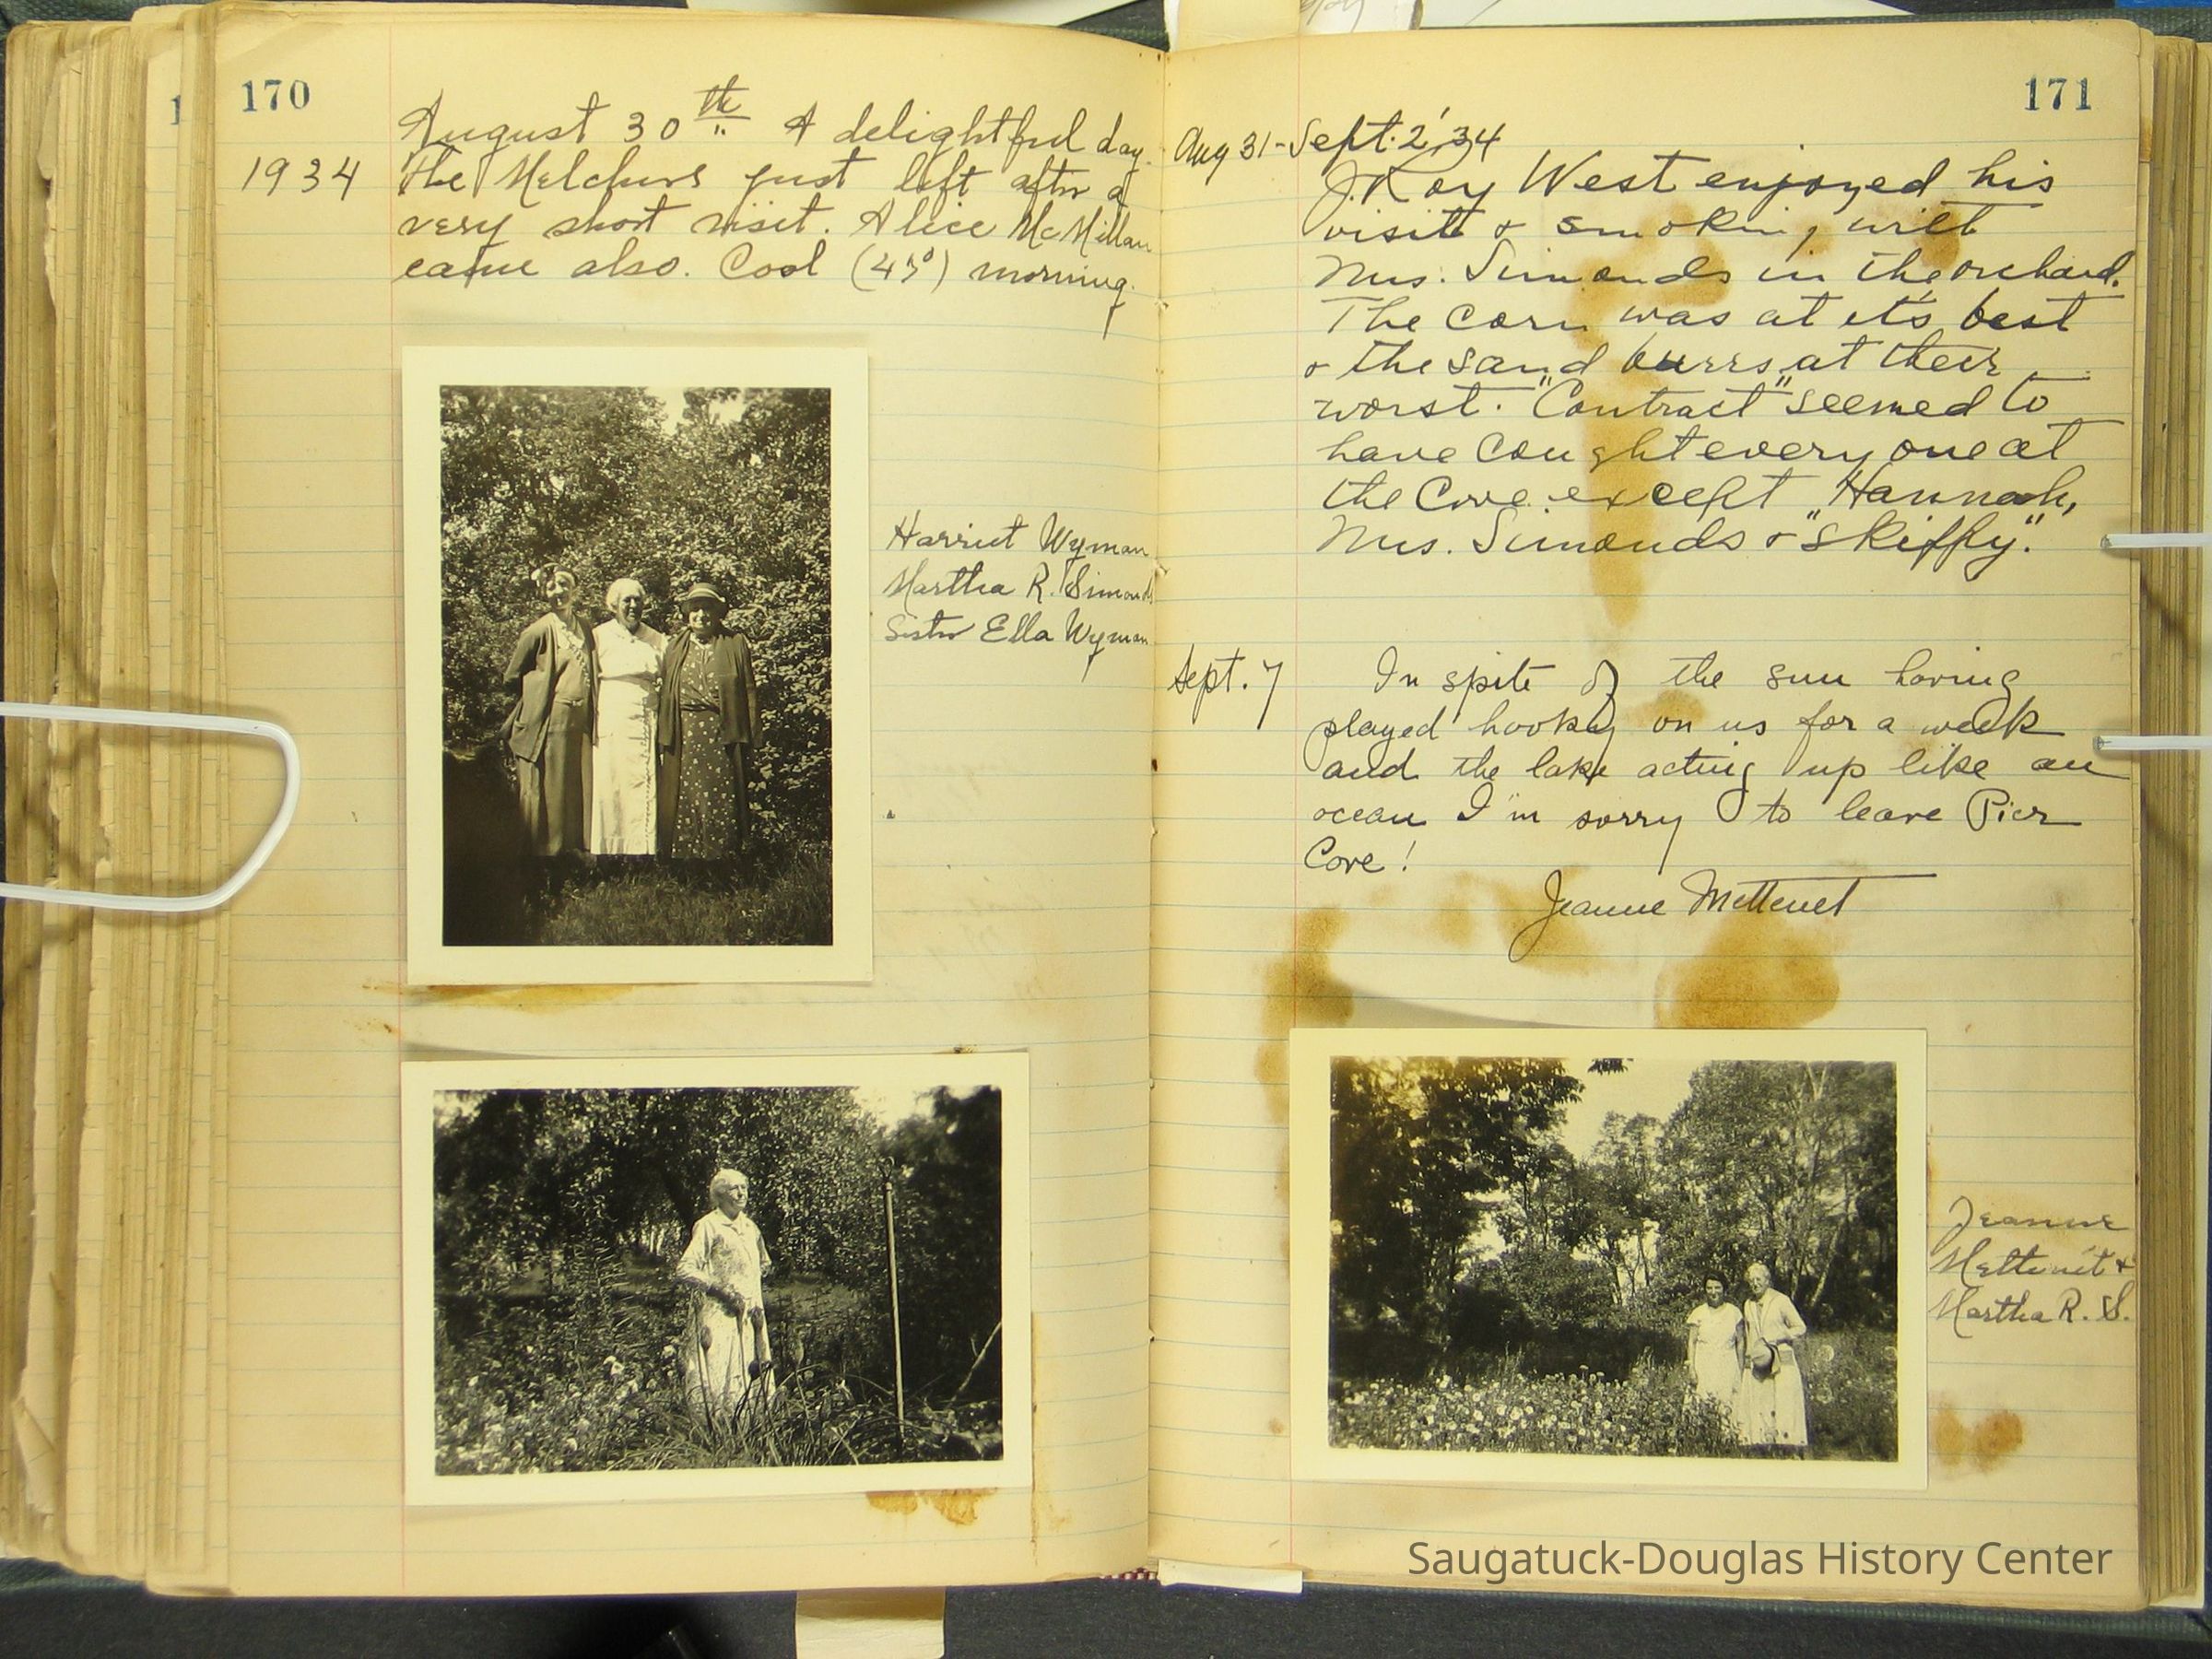 170
1934
August 30th A delightful day.
The Melchers just left after a
very short visit. Alice McMillan
came also. Cool (45°) morning.
Harriet Wyman
Martha R. Simonds
Sister Ella Wyman
171
Aug 31-Sept. 2, '34
J. Roy West enjoyed his
visit & smoking with
Mrs. Simonds in the orchard.
The corn was at it's best
& the sand burrs at their
worst. "Contract" seemed to
have caught every one at
the Cove except Hannah,
Mrs. Simonds & "Skiffy".
Sept. 7
In spite of the sun having
played hookey on us for a week
and the lake acting up like an
ocean I'm sorry to leave Pier
Cove!
Jeanne Mettenet
Jeanne
Mettenet &
Martha R. S.
Saugatuck-Douglas History Center